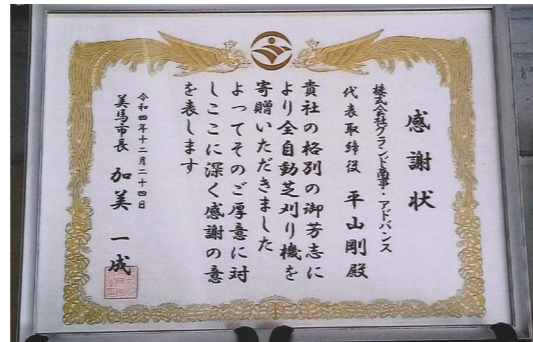 感謝状
株式会社グランド商事・アドバンス
代表取締役 平山剛殿
貴社の格別の御芳志に
より全自動芝刈り機を
寄贈いただきました
よってそのご厚意に対
しここに深く感謝の意
を表します
令和四年十二月二十四日
美馬市長 加美一成